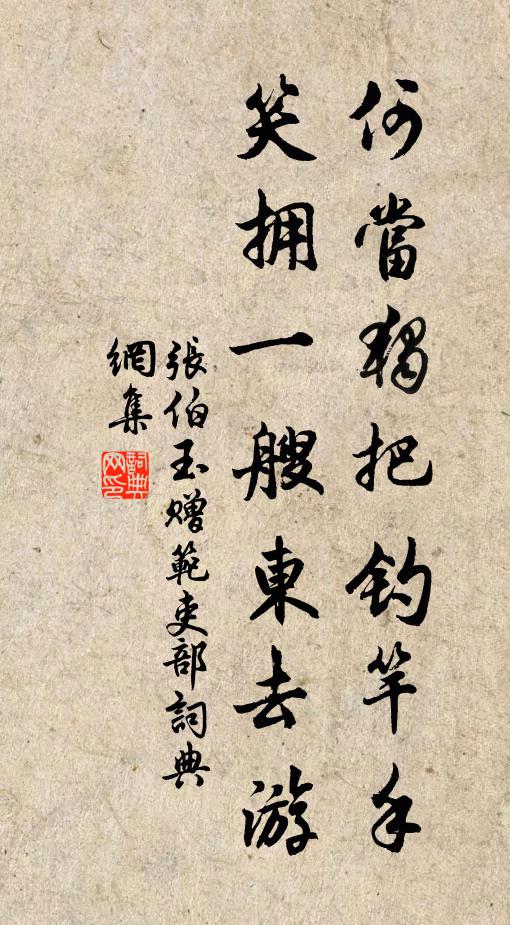 何當獨把釣竿手
笑拥一艘東去游
張伯玉赠範吏部詞典
網集
詞典
网印